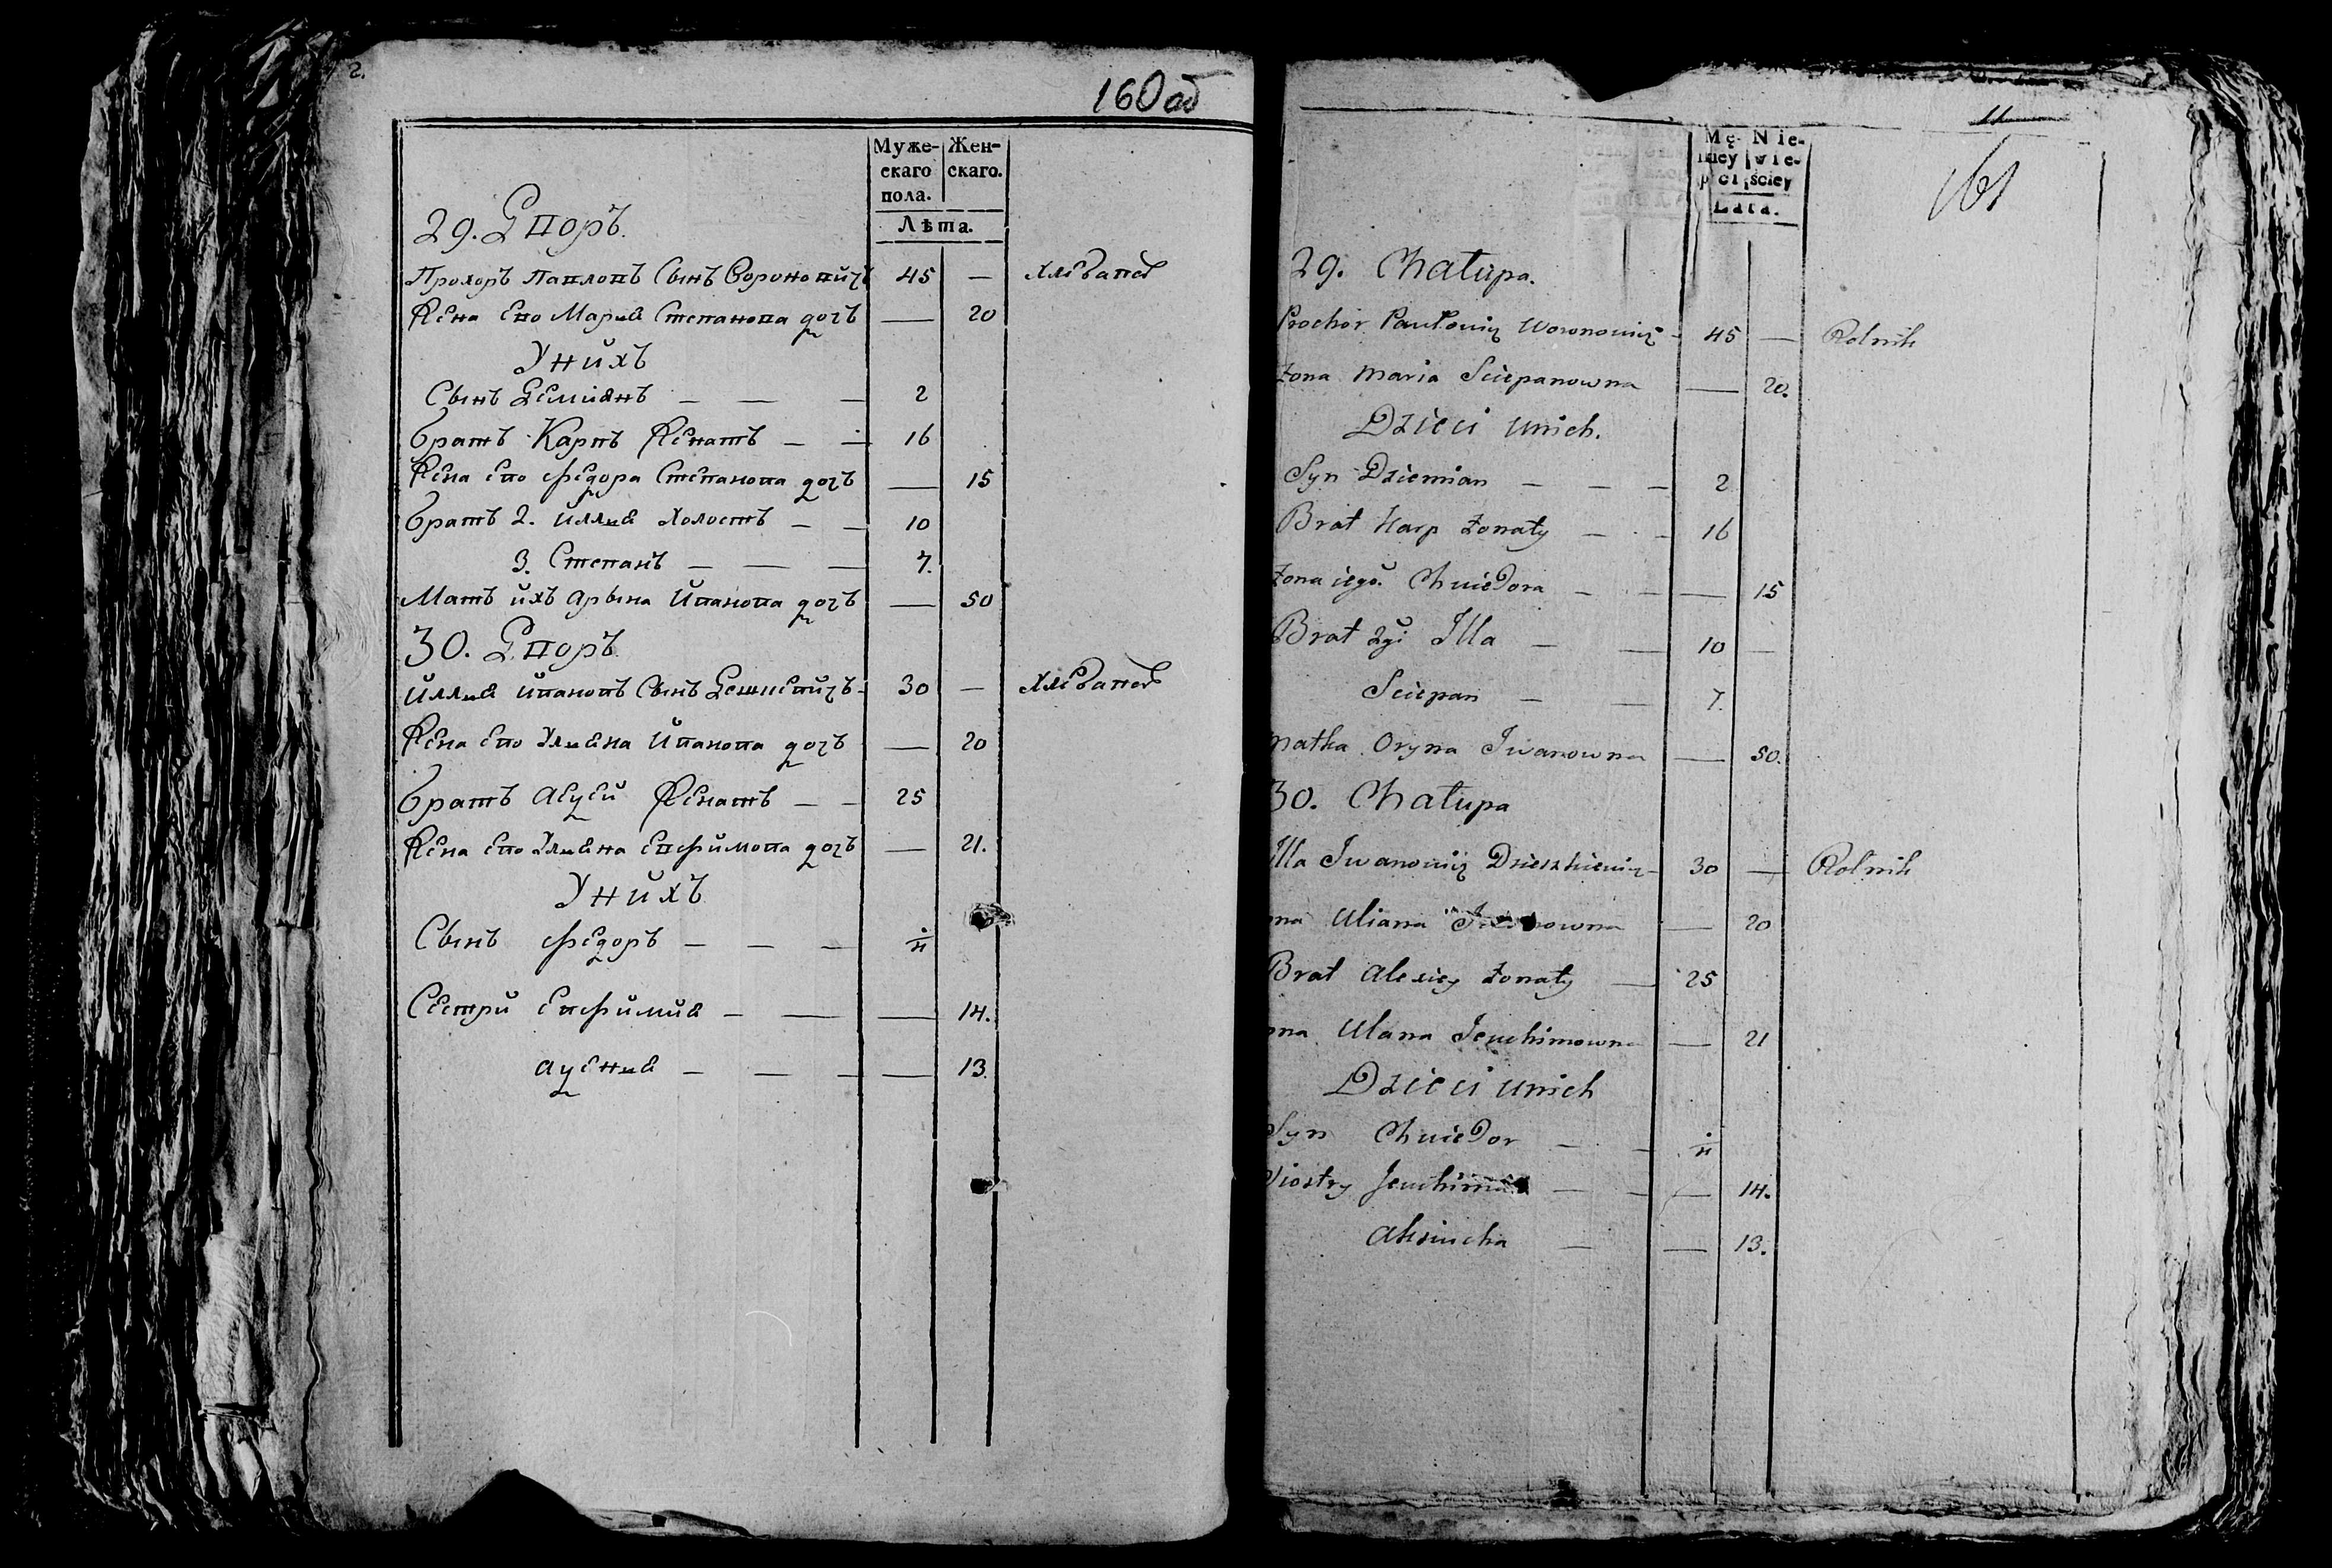 2.
160 об
Муже-
скаго
пола.
Жен-
скаго.
Лѣта.
29. Дворъ.
Прохоръ Павловъ Сынъ Вороновичъ 45 — Хлебапецъ
Жена Его Мария Степанова дочь — 20
У нихъ
Сынъ Демиянъ — — — 2
братъ Карпъ Женатъ — — 16
Жена Его Федора Степанова дочь — 15
братъ 2. Иллия Холостъ — — 10
3. Степанъ — — — 7.
Мать ихъ Арына Иванова дочь — 50
30. Дворъ
Иллия Ивановъ Сынъ Дешкевичъ 30 — Хлебапецъ
Жена Его Улияна Иванова дочь — 20
братъ Ацей Женатъ — — 25
Жена Его Улияна Евфимова дочь — 21.
У нихъ
Сынъ Федоръ — — — ½
Сестри Евфимия — — — 14.
Ацения — — — — 13.
11
161
Mę-
zkiey
płci
Nie-
wie-
ściey
Lata.
29. Chałupa.
Prochor Pawłowicz Woronowicz - 45 — Rolnik
żona Maria Sciepanowna — 20.
Dzieci u nich.
Syn Dziemian — — — 2
Brat Karp żonaty — - 16
żona iego Chwiedora — — — 15
Brat 2gi Illa — — 10 —
Sciepan — — 7.
Matka Oryna Iwanowna — 50.
30. Chałupa
Illa Iwanowicz Dzieszkiewicz - 30 — Rolnik
Uliana — 20
Brat Alexiey żonaty — 25
Ulana Jeuchimowna — 21
Dzieci u nich
Syn Chwiedor — — ½
Siostry Jeuchimia — — — 14.
Aksiucha — — 13.